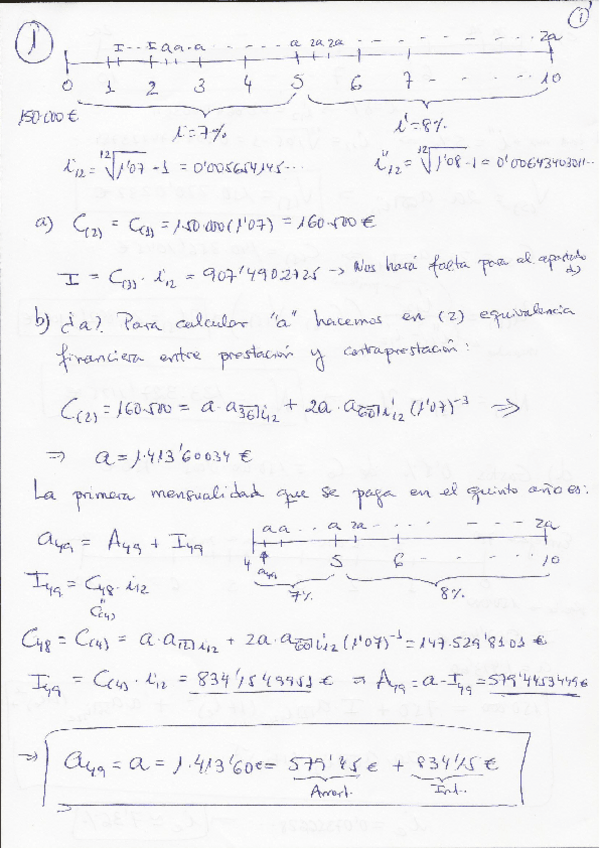 1
1
I ... I a a ... a - - - - - - a 2a 2a - - - - - - 2a
0 1 2 3 4 5 6 7 - - - - 10
150.000 €
i = 7% i' = 8%
i₁₂ = ¹²√1'07 - 1 = 0'005654145... i'₁₂ = ¹²√1'08 - 1 = 0'00643403011...
a) C₍₂₎ = C₍₁₎ = 150.000(1'07) = 160.500 €
I = C₍₁₎ · i₁₂ = 907'4902725 → Nos hará falta para el apartado d)
b) ¿a? Para calcular "a" hacemos en (2) equivalencia
financiera entre prestación y contraprestación:
C₍₂₎ = 160.500 = a · a 36| i₁₂ + 2a · a 60| i'₁₂ (1'07)⁻³ ⇒
⇒ a = 1.413'60034 €
La primera mensualidad que se paga en el quinto año es:
a a ... a 2a - - - - - - 2a
a₄₉ = A₄₉ + I₄₉
4 a₄₉ 5 6 - - - - 10
7% 8%
I₄₉ = C₄₈ · i₁₂
" C₍₄₎
C₄₈ = C₍₄₎ = a · a 12| i₁₂ + 2a · a 60| i'₁₂ (1'07)⁻¹ = 147.529'8101 €
I₄₉ = C₍₄₎ · i₁₂ = 834'1549951 € ⇒ A₄₉ = a - I₄₉ = 579'4453449 €
⇒ a₄₉ = a = 1.413'60 € = 579'45 € + 834'15 €
Amort. Int.